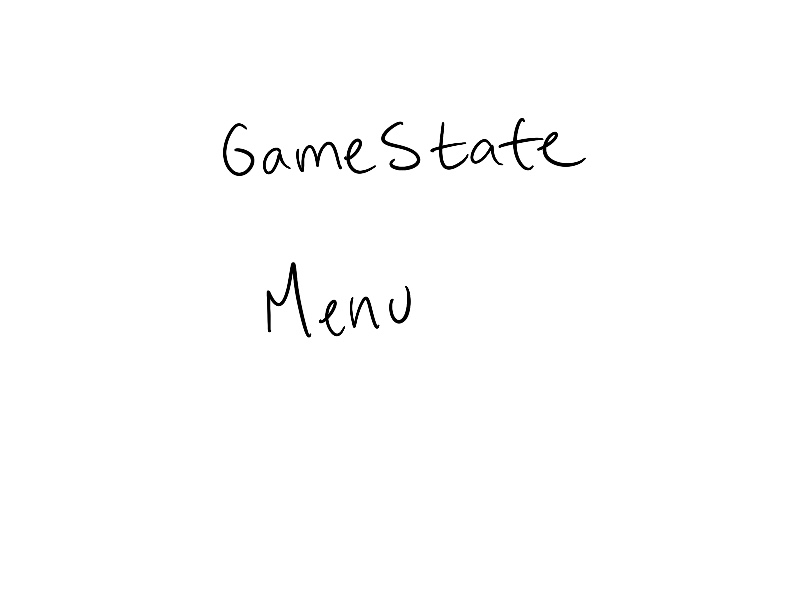 GameState
Menu